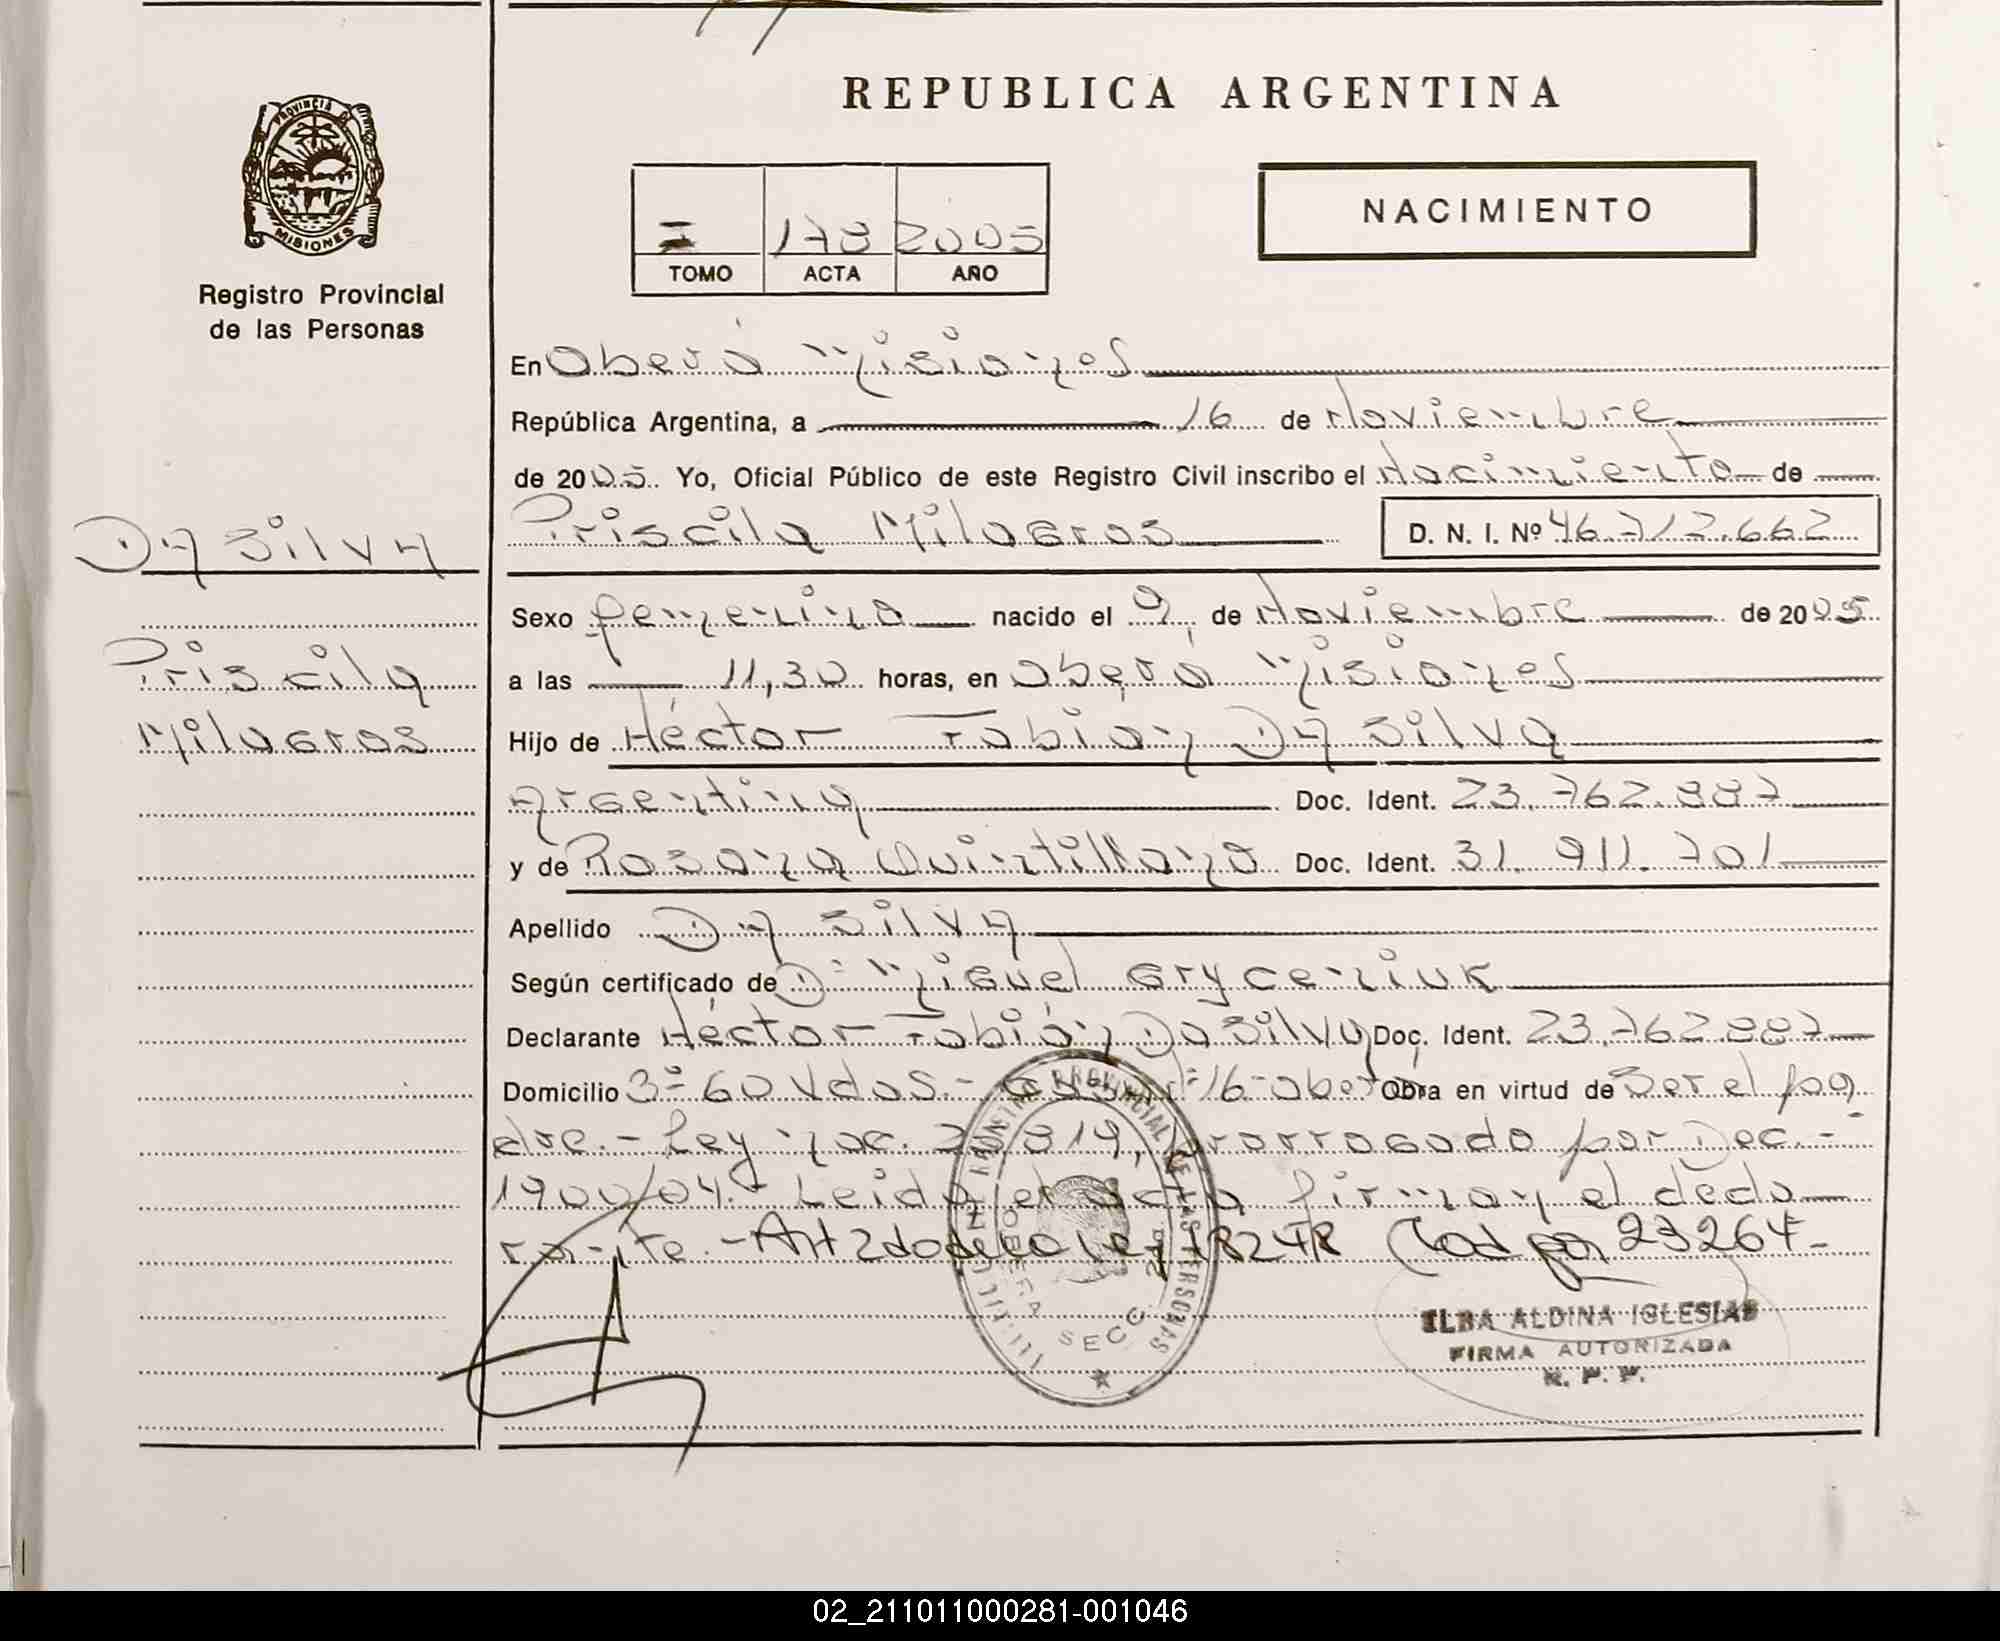 REPUBLICA ARGENTINA
PROVINCIA DE
MISIONES
Registro Provincial
de las Personas
I 178 2005
TOMO ACTA AÑO
NACIMIENTO
En Oberá Misiones
República Argentina, a 16 de Noviembre
de 2005. Yo, Oficial Público de este Registro Civil inscribo el Nacimiento de
Priscila Milagros D. N. I. Nº 46.712.662
Da Silva
Priscila
Milagros
Sexo femenino nacido el 9, de Noviembre de 2005
a las 11,30 horas, en Oberá Misiones
Hijo de Héctor Fabián Da Silva
Argentina Doc. Ident. 23.762.887
y de Rosana Quintillana Doc. Ident. 31.911.701
Apellido Da Silva
Según certificado de Dr Miguel Gryceniuk
Declarante Héctor Fabián Da Silva Doc. Ident. 23.762.887
Domicilio 3º 60 Vdas.- casa nº 16-Oberá Obra en virtud de Ser el pa
dre.- Ley nac. 25.819, prorrogado por Dec.-
1900/04.- Leida el acta firman el decla
rante.- Art 2do de la Ley 18248 Mod por 23264-
REGISTRO PROVINCIAL DE LAS PERSONAS
OBERA SECC.
ELBA ALDINA IGLESIAS
FIRMA AUTORIZADA
R. P. P.
02_211011000281-001046